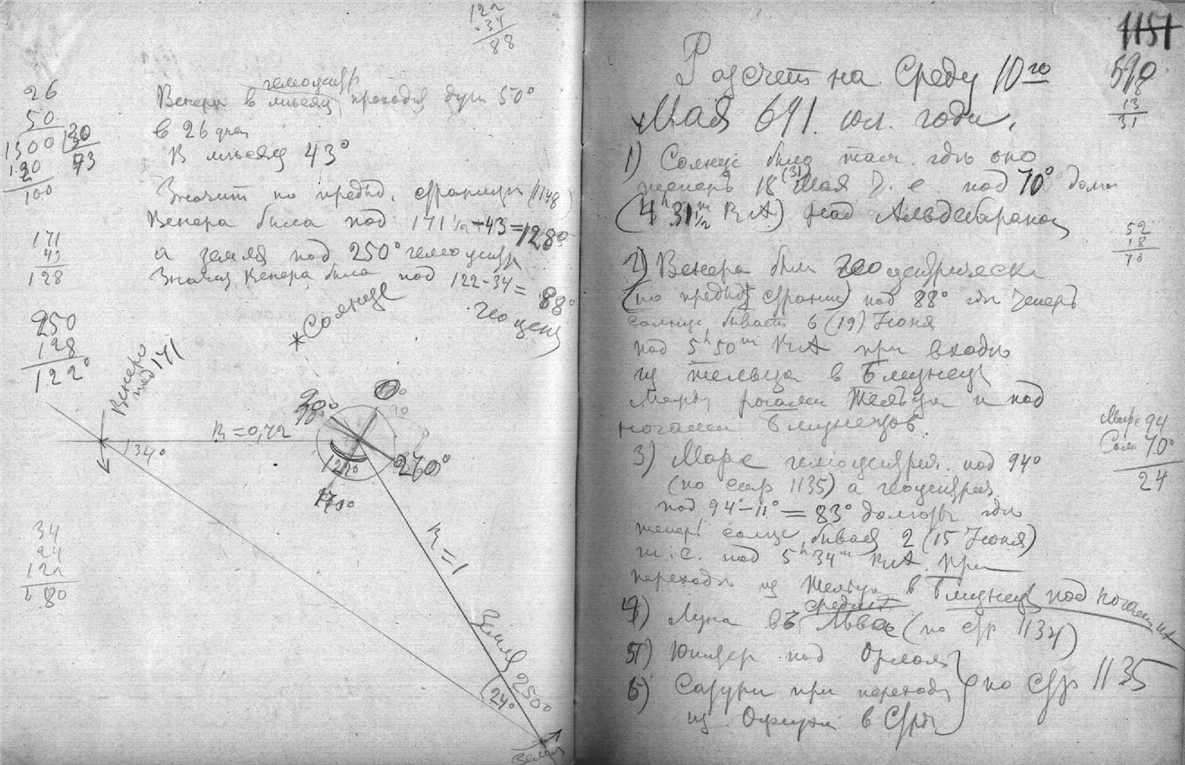 122
34
88
26
50
1300 30
120 43
100
геліоцентр
Венера в мѣсяц проходя дуги 50°
в 26 дней
В мѣсяц 43°
Значит по предыд. страницы (1148)
Венера была под 171 1/2 – 43 = 128°
а земля под 250° геліоцентр
Значит Венера была под 122–34 = 88°
геоцент
171
43
128
250
128
122°
Солнце
Венера
под 171
R = 0,72
34°
90°
122°
270°
R = 1
Земля 250°
24°
Земля
34
24
122
180
1151
590
18
13
31
Расчет на Среду 10го
Мая 691. юл. года.
1) Солнце было там. гдѣ оно
теперь 18 (31) Мая т. е под 70° долготы
(4h 31 1/2m RA) над Альдебараном
52
18
70
2) Венера была геоцентрически
(по предыд. страниц) под 88° гдѣ теперь
солнце бывает 6 (19) Іюня
под 5h 50m RA при входѣ
из тельца в Близнецы
Между рогами Тельца и под
ногами Близнецов.
Марс 94
Солн 70°
24
3) Марс геліоцентрич. под 94°
(по стр 1135) а геоцентрич
под 94°–11° = 83° долготы гдѣ
теперь солнце бывает 2 (15 Іюня)
т. е. под 5h 34m RA при
переходѣ из Тельца в Близнецы под ногами их
срединѣ
4) Луна въ Льва (по стр 1134)
5) Юпитер под Орлом
6) Сатурн при переходѣ } по стр 1135
из Офіуха в Стрѣ